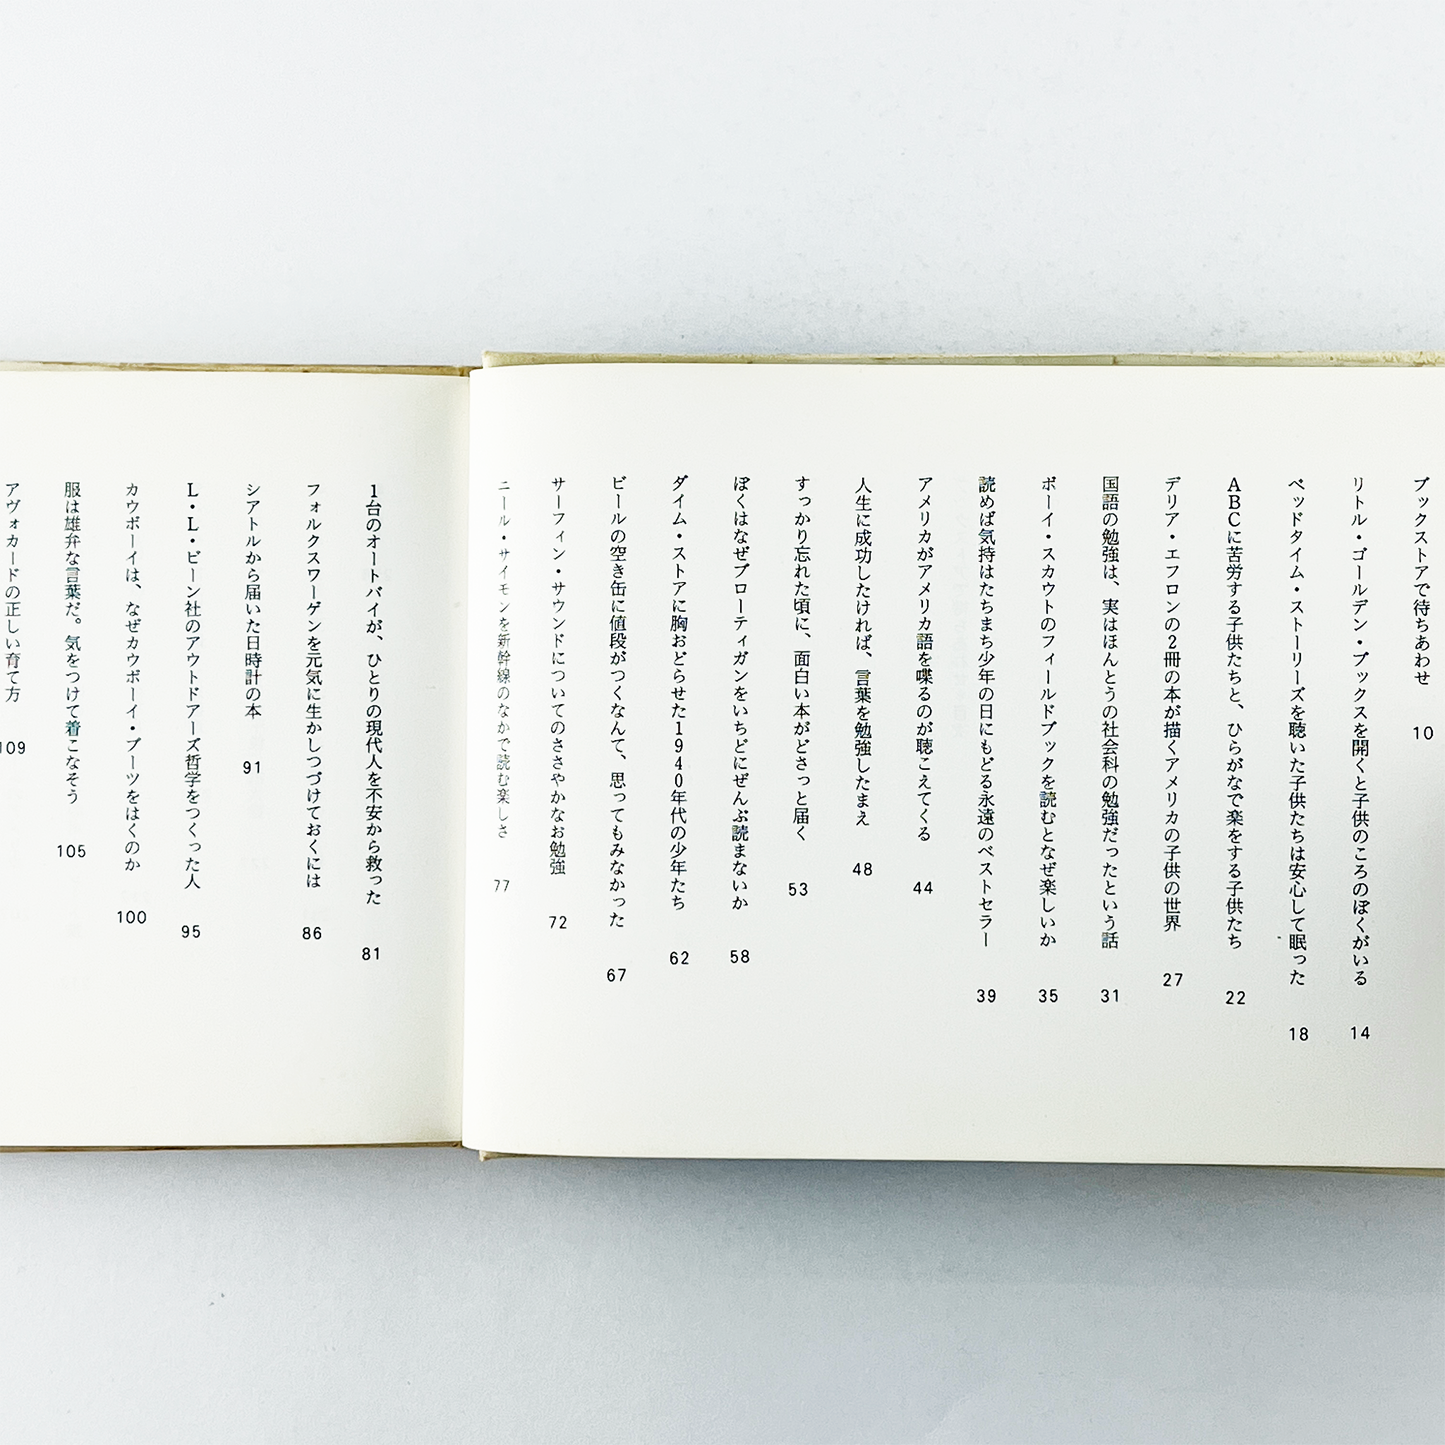 ブックストアで待ちあわせ 10
リトル・ゴールデン・ブックスを開くと子供のころのぼくがいる 14
ベッドタイム・ストーリーズを聴いた子供たちは安心して眠った 18
ABCに苦労する子供たちと、ひらがなで楽をする子供たち 22
デリア・エフロンの2冊の本が描くアメリカの子供の世界 27
国語の勉強は、実はほんとうの社会科の勉強だったという話 31
ボーイ・スカウトのフィールドブックを読むとなぜ楽しいか 35
読めば気持はたちまち少年の日にもどる永遠のベストセラー 39
アメリカがアメリカ語を喋るのが聴こえてくる 44
人生に成功したければ、言葉を勉強したまえ 48
すっかり忘れた頃に、面白い本がどさっと届く 53
ぼくはなぜブローティガンをいちどにぜんぶ読まないか 58
ダイム・ストアに胸おどらせた1940年代の少年たち 62
ビールの空き缶に値段がつくなんて、思ってもみなかった 67
サーフィン・サウンドについてのささやかなお勉強 72
ニール・サイモンを新幹線のなかで読む楽しさ 77
1台のオートバイが、ひとりの現代人を不安から救った 81
フォルクスワーゲンを元気に生かしつづけておくには 86
シアトルから届いた日時計の本 91
L・L・ビーン社のアウトドアーズ哲学をつくった人 95
カウボーイは、なぜカウボーイ・ブーツをはくのか 100
服は雄弁な言葉だ。気をつけて着こなそう 105
アヴォカードの正しい育て方 109